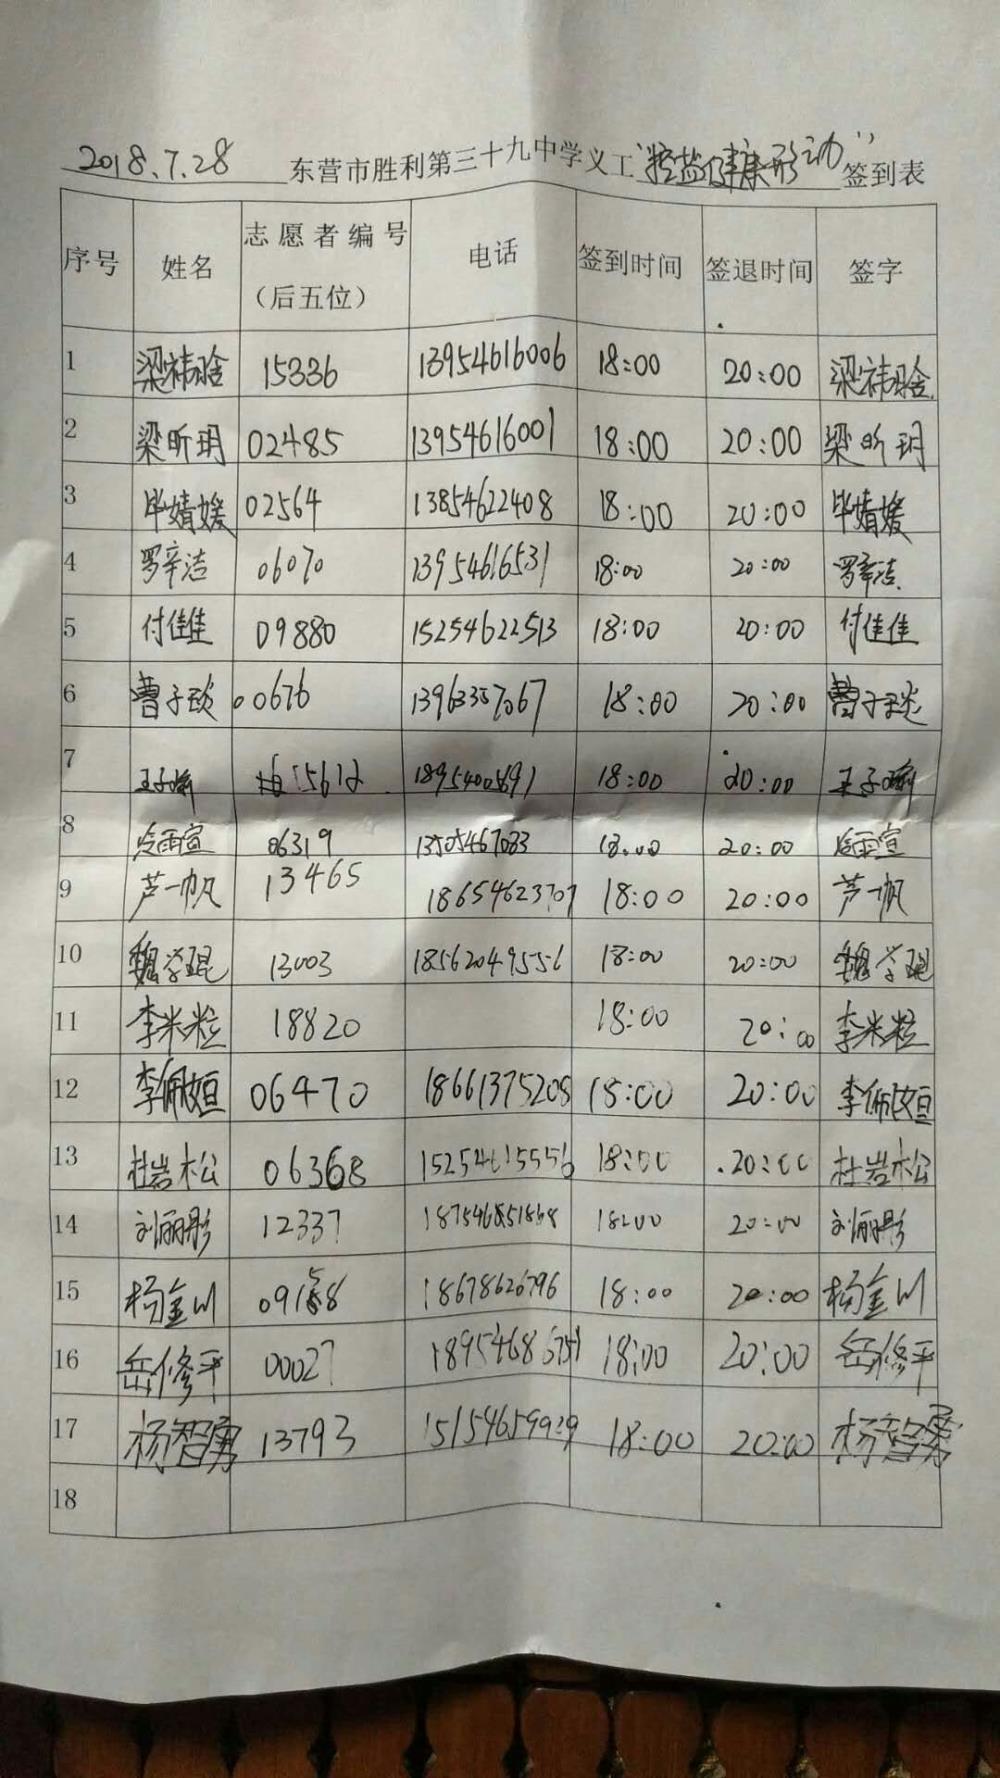 2018.7.28 东营市胜利第三十九中学义工"控盐健康行动"签到表
序号 姓名 志愿者编号（后五位） 电话 签到时间 签退时间 签字
1 梁祎晗 15336 13954616006 18:00 20:00 梁祎晗
2 梁昕玥 02485 13954616001 18:00 20:00 梁昕玥
3 毕婧媛 02564 13854622408 18:00 20:00 毕婧媛
4 罗辛洁 06070 13954616531 18:00 20:00 罗辛洁
5 付佳佳 09880 15254622513 18:00 20:00 付佳佳
6 曹子琰 00676 13963357067 18:00 20:00 曹子琰
7 15612 18:00 20:00
8 06319 18:00 20:00
9 芦一帆 13465 18654623707 18:00 20:00 芦一帆
10 魏学琨 13003 18562049556 18:00 20:00 魏学琨
11 李米粒 18820 18:00 20:00 李米粒
12 李佩姮 06470 18661375208 18:00 20:00 李佩姮
13 杜岩松 06368 15254615556 18:00 20:00 杜岩松
14 刘丽彤 12337 18:00 20:00 刘丽彤
15 杨金川 18678626796 18:00 20:00 杨金川
16 岳修平 00027 18:00 20:00 岳修平
17 杨智勇 13793 15154659929 18:00 20:00 杨智勇
18